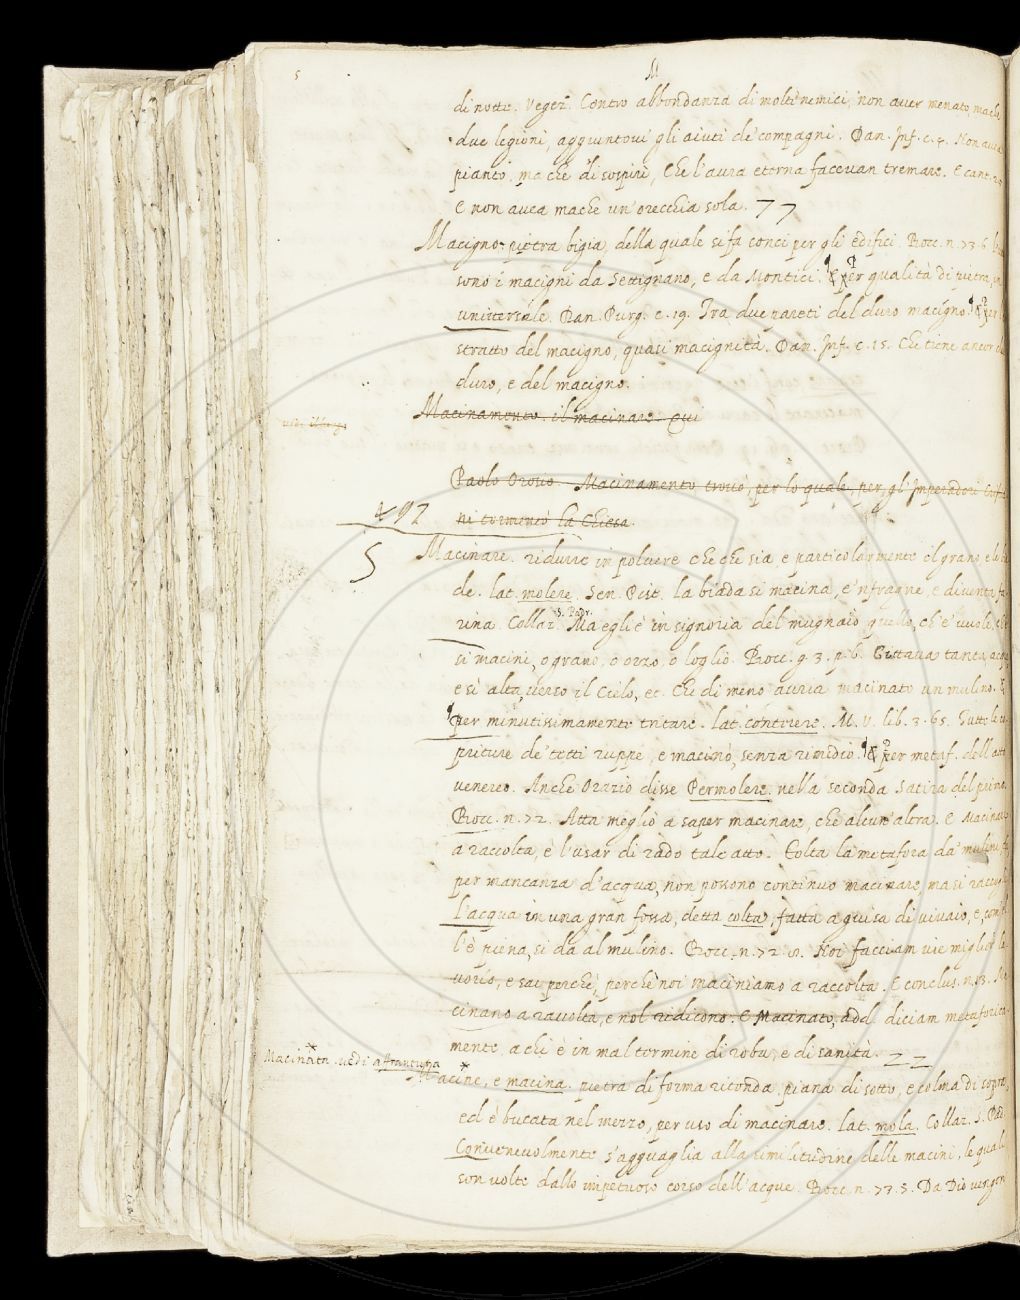 M
di notte. Vegez. Contro abbondanza di molti nemici, non aver menato, mache
due legioni, aggiuntovi gli aiuti de' compagni. Dan. Inf. c. 4. Non avea
pianto, ma che di sospiri, Che l'aura eterna facevan tremare. E cant.
E non avea mache un'orecchia sola.
Macigno. pietra bigia, della quale si fa conci per gli edifici. Bocc. n. 73. 6.
sono i macigni da Settignano, e da Montici. & per qualità di pietra, in
universale. Dan. Purg. c. 19. Tra due pareti del duro macigno. & per
stratto del macigno, quasi macignità. Dan. Inf. c. 15. Che tiene ancor
duro, e del macigno.
Macinamento. il macinare.
Paolo Orosio. Macinamento trovò, per lo quale, per gl'Imperadori
ni tormentò la Chiesa.
Macinare. ridurre in polvere che che sia, e particolarmente il grano e le
de. lat. molere. Sen. Pist. la biada si macina, e 'nfragne, e diventa fa
rina. Collaz. S. Padr. Ma egli è in signoria del mugnaio quello, ch'e' vuole, che
si macini, o grano, o orzo, o loglio. Bocc. g. 3. p. 6. Gittava tanta acqua
e sì alta, verso il Cielo, ec. Che di meno avria macinato un mulino. &
per minutissimamente tritare. lat. conterere. M. V. lib. 3. 65. Tutte le co
priture de' tetti ruppe, e macinò, senza rimedio. & per metaf. dell'atto
venereo. Anche Orazio disse Permolere. nella seconda Satira del primo.
Bocc. n. 72. Atta meglio a saper macinare, che alcun'altra. E Macinare
a raccolta, è l'usar di rado tale atto. Tolta la metafora da' mulini,
per mancanza d'acqua, non possono continuo macinare, ma si raccogl
l'acqua in una gran fossa, detta colta, fatta a guisa di vivaio, e, com'
l'è piena, si dà al mulino. Bocc. n. 72. Noi facciam vie miglior la
vorio, e sai perchè, perchè noi maciniamo a raccolta. E conclus. n. 13. Ma
cinano a raccolta, e nol ridicono. E Macinato, add. diciam metaforica
mente, a chi è in mal termine di roba, e di sanità.
Macinata. vedi affrantura
Macine, e macina. pietra di forma ritonda, piana di sotto, e colma di sopra,
ed è bucata nel mezzo, per uso di macinare. lat. mola. Collaz. S. Pad.
Convenevolmente s'agguaglia alla similitudine delle macini, le quali
son volte dallo impetuoso corso dell'acque. Bocc. n. 73. 5. Da Dio vengon